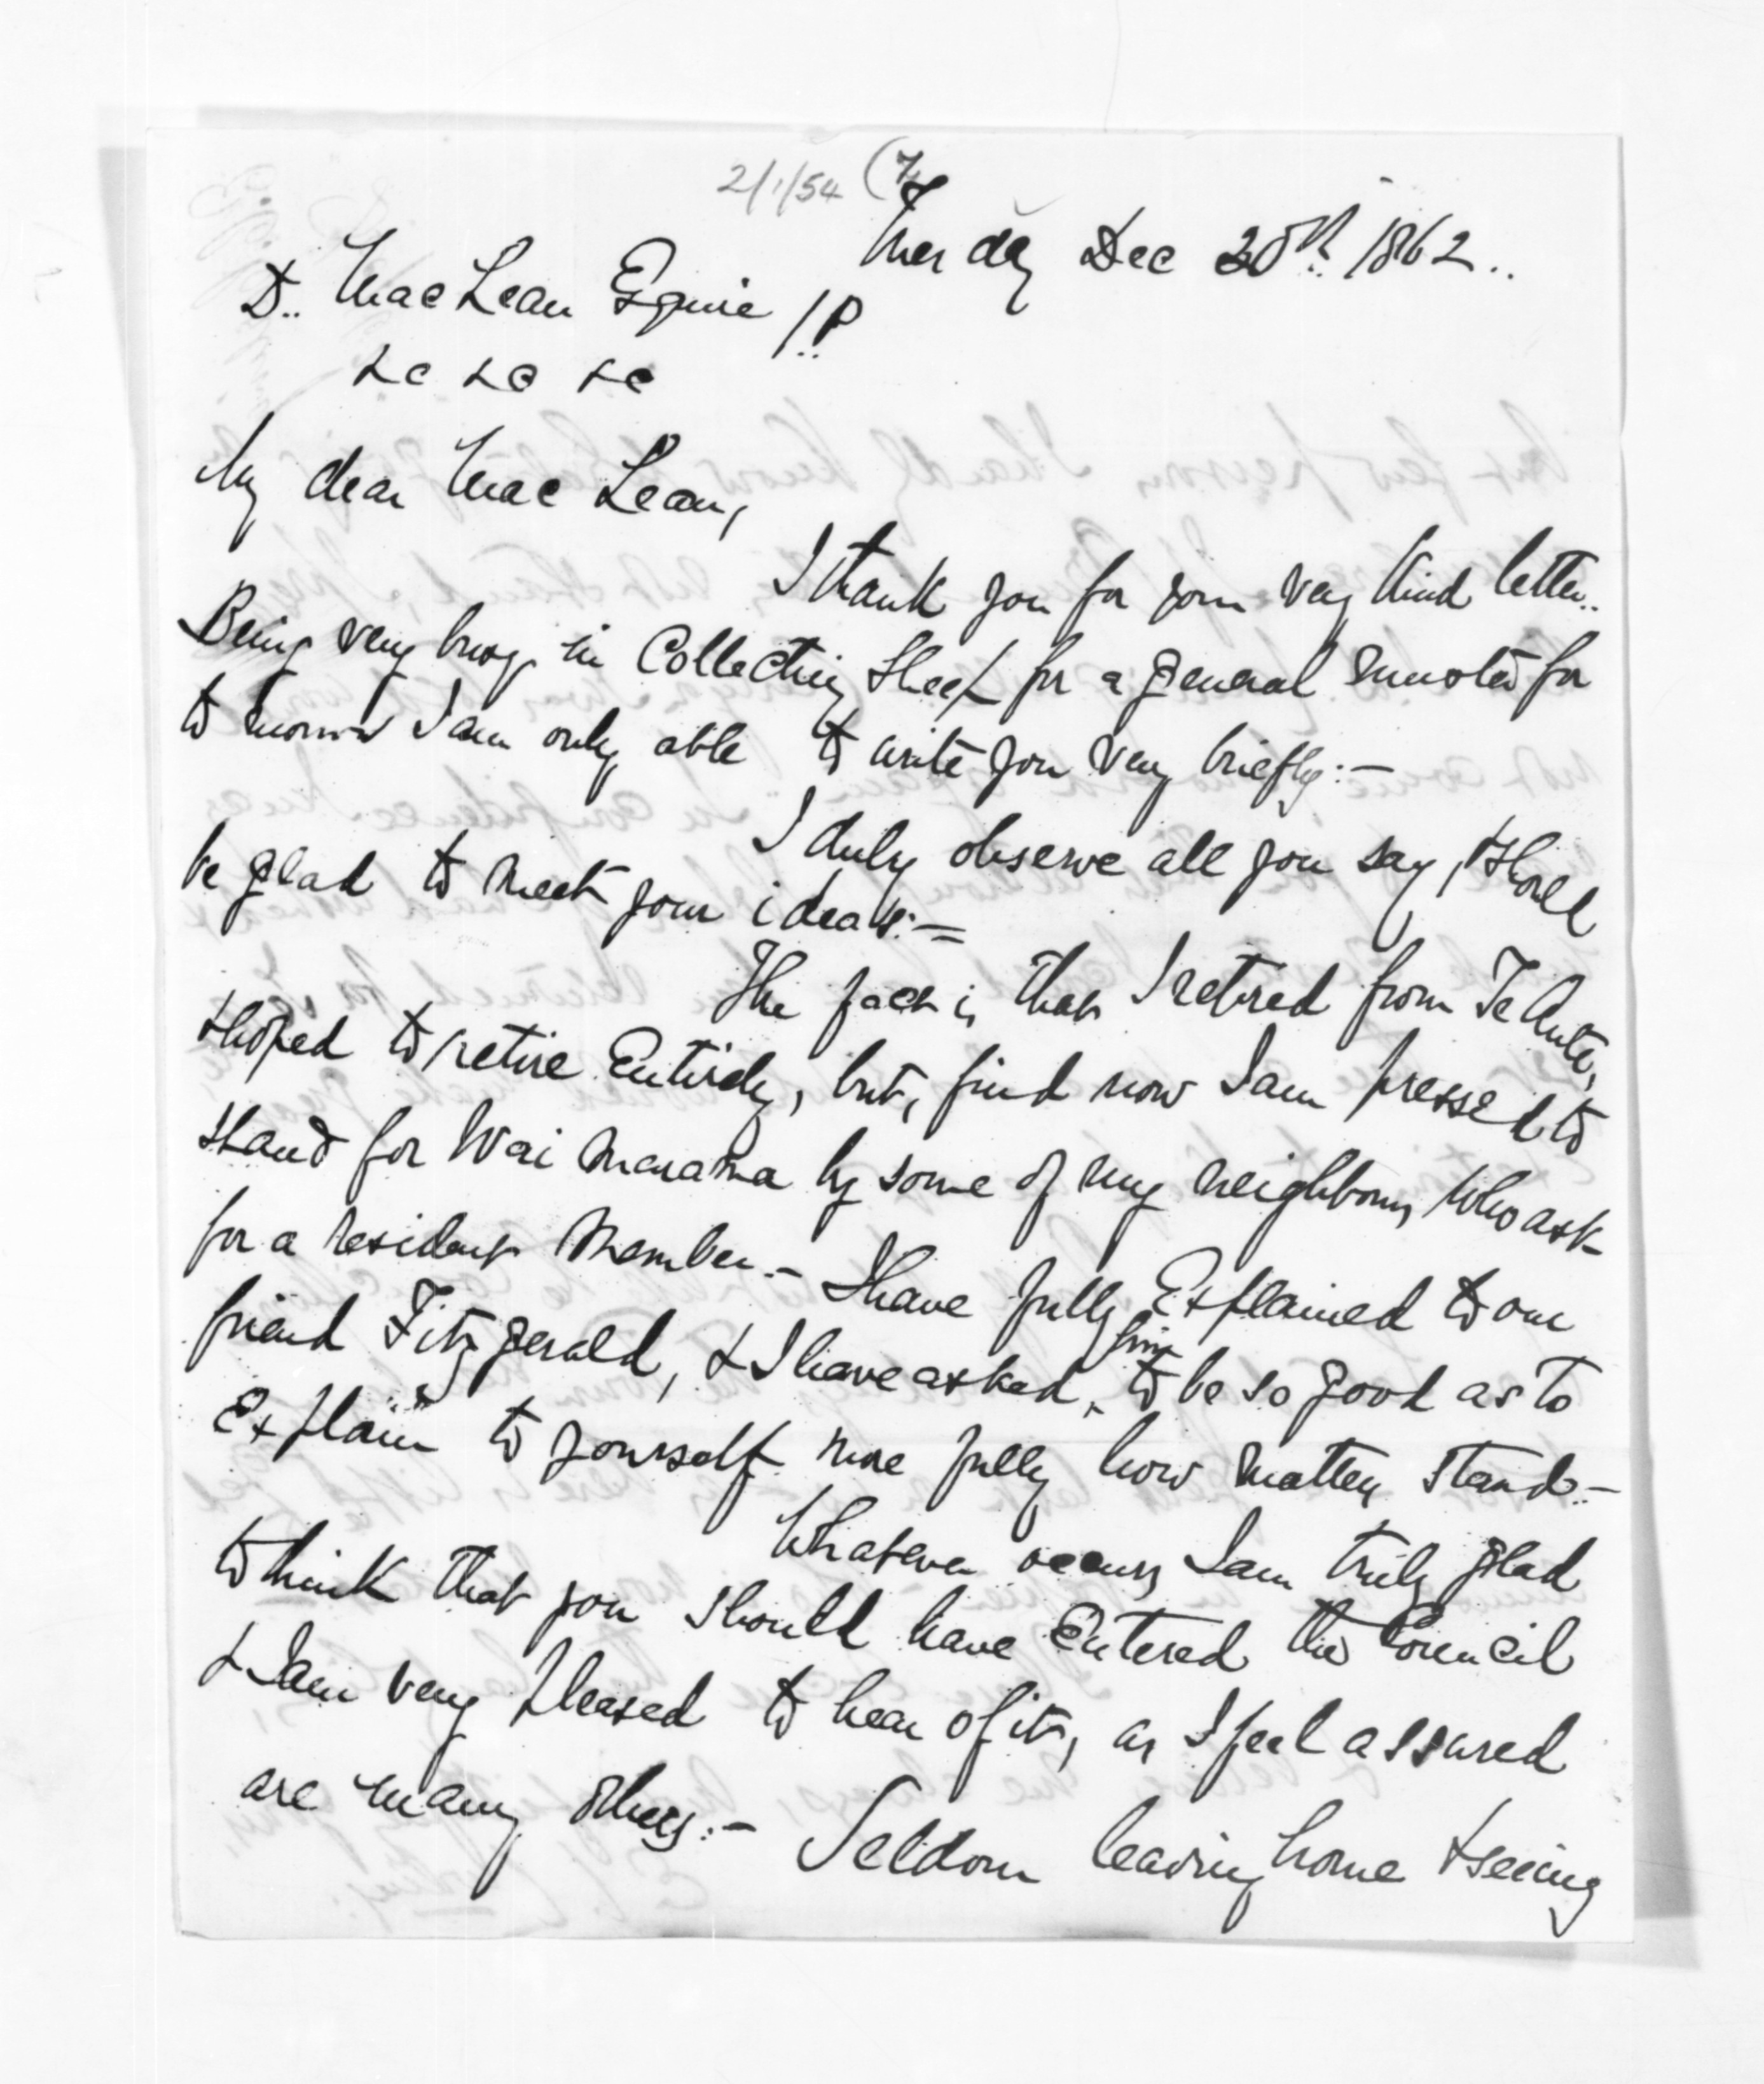 2/1/54
Dec 20th.. 1862..
D.. MacLean Esquire J.P
&c &c &c
My dear MacLean,
I thank you for your very kind letter..
Being very busy in Collecting Sheep for a general for
to morrow I am only able to write you very briefly:-
I duly observe all you say, & shall
be glad to meet your ideas:-
The fact is that I retired from Te Aute,
& hoped to retire Entirely, but, find now I am pressed to
stand for Wai Marama by some of my neighbours who ask
for a resident Member.- I have fully Explained to our
friend Fitzgerald, & I have asked him to be so good as to
Explain to yourself more fully how matters stand.-
Whatever occurs I am truly glad
to think that you should have Entered the Council
& I am very pleased to hear of it, as I feel assured
are many others:- Seldom leaving home & seeing